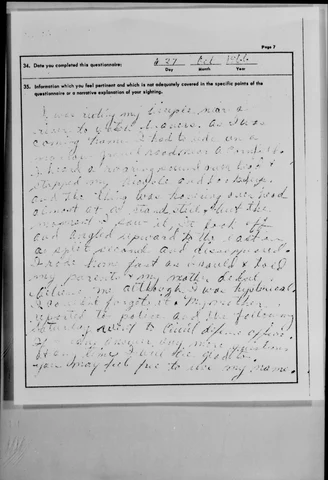 Page 7
34. Date you completed this questionnaire: 27 Oct
Day Month Year
35. Information which you feel pertinent and which is not adequately covered in the specific points of the
questionnaire or a narrative explanation of your sighting.
I was riding my bicycle near a
river to watch As I was
coming home I had to ride on a
gravel road
I heard a roaring sound over head &
stopped my bicycle and
and the thing was hovering over head
almost at a stand still. But the
moment I saw it, it took off
and angled upward to the eastern
a split second and disappeared.
I rode home fast as I could & told
my parents & my mother didn't
believe me although I was hysterical.
I forget it. My mother
reported to police and the following
Saturday went to Civil defense office.
answer any more questions
at any time I will be glad to.
You may feel free to use my name.